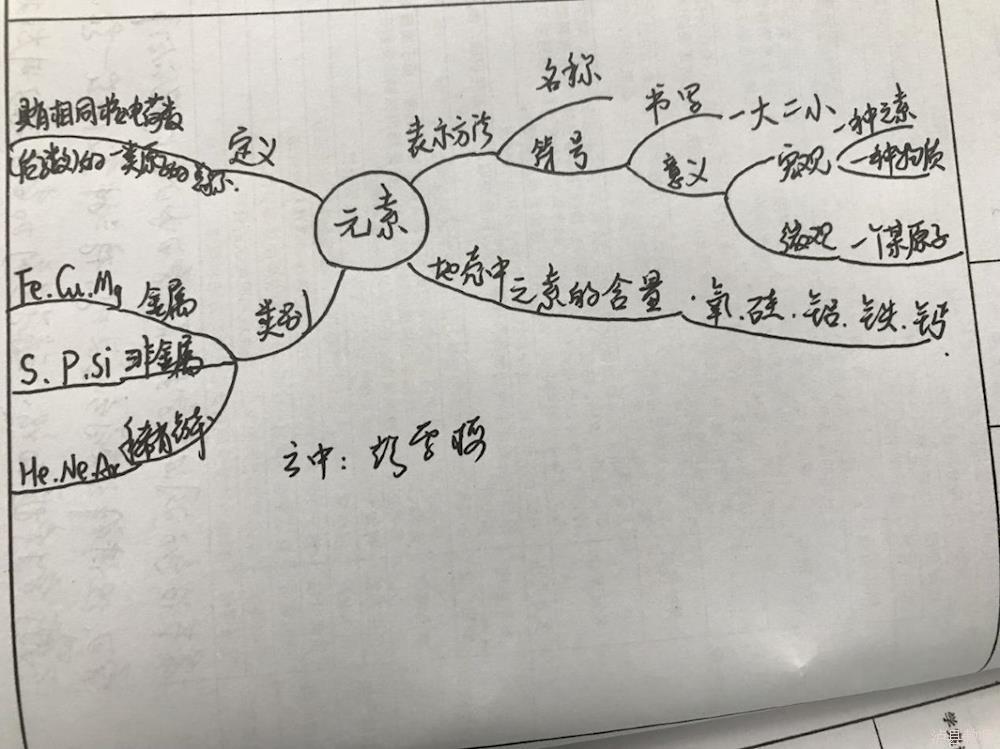 名称
书写
一大二小
一种元素
表示方法
符号
意义
宏观
一种物质
具有相同核电荷数
定义
(质子数)的一类原子的总称.
元素
微观
一个某原子
地壳中元素的含量
·氧.硅.铝.铁.钙.
Fe.Cu.Mg
金属
类别
S.P.Si
非金属
He.Ne.Ar
稀有气体